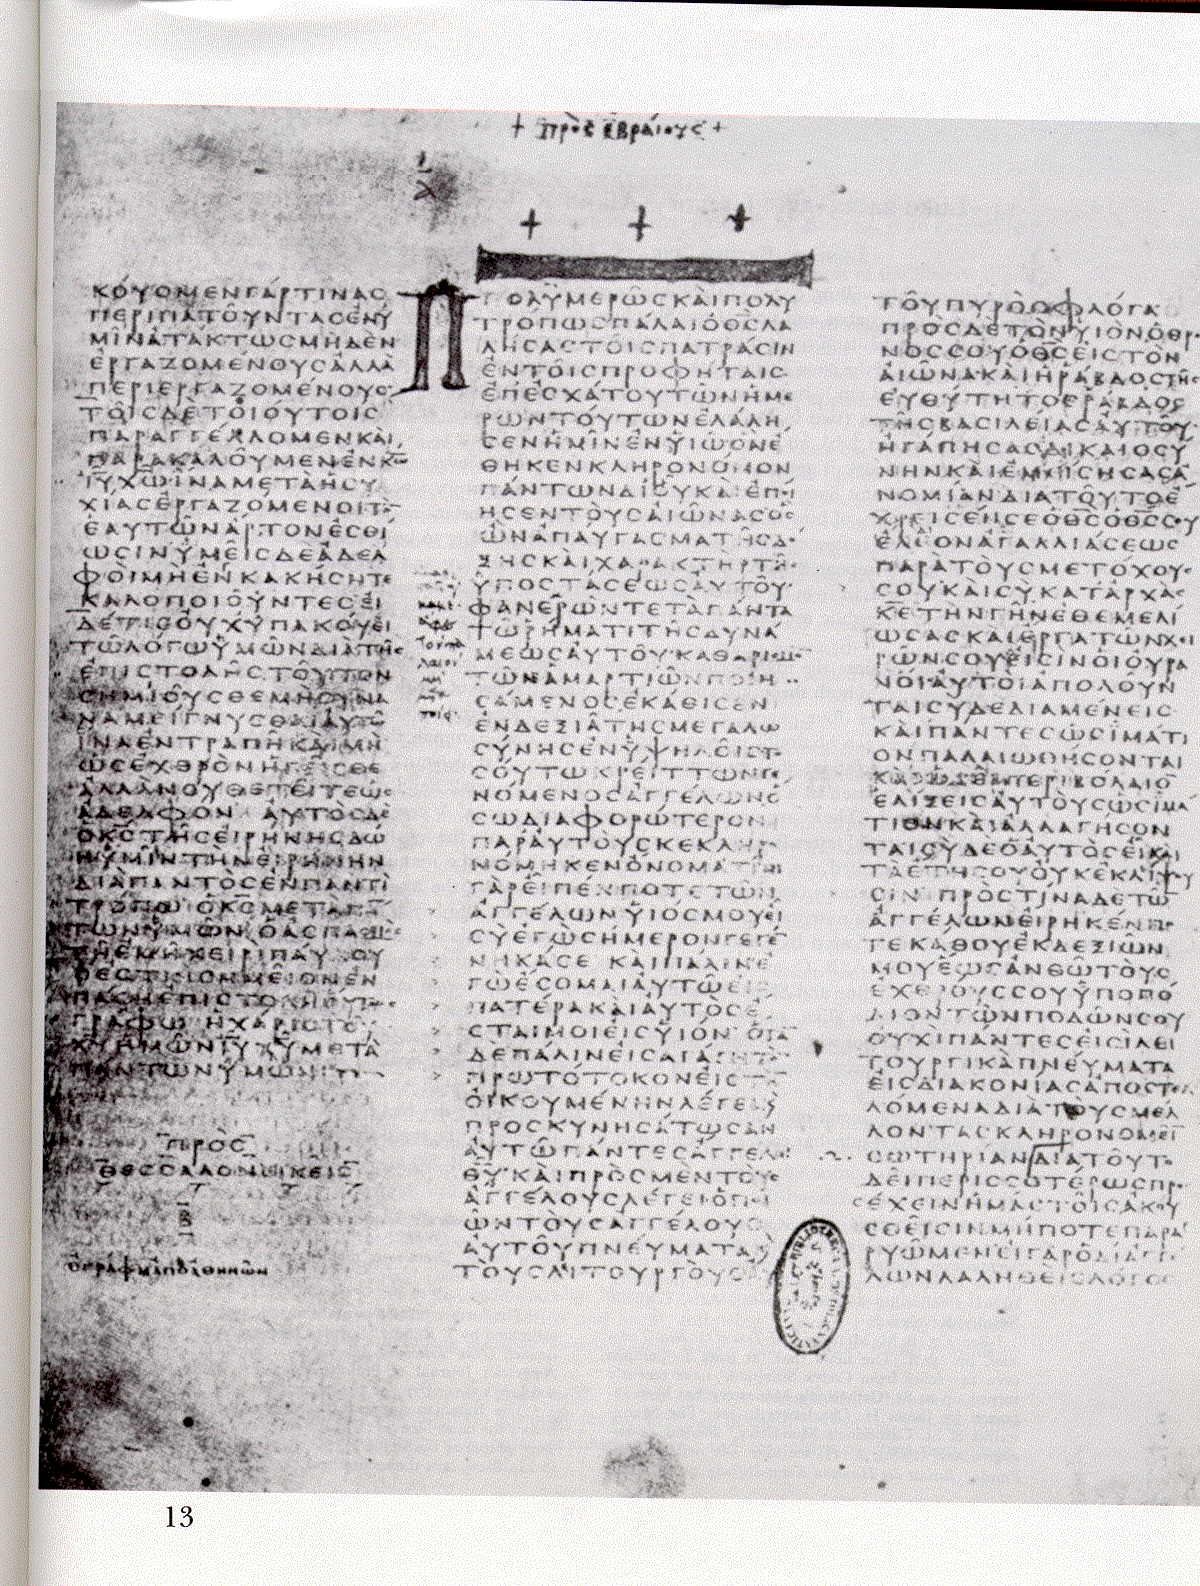 + πρὸς ἑβραίους +
ΚΟΥΟΜΕΝΓΑΡΤΙΝΑϹ
ΠΕΡΙΠΑΤΟΥΝΤΑϹΕΝΥ
ΜΙΝΑΤΑΚΤΩϹΜΗΔΕΝ
ΕΡΓΑΖΟΜΕΝΟΥϹΑΛΛΑ
ΠΕΡΙΕΡΓΑΖΟΜΕΝΟΥϹ
ΤΟΙϹΔΕΤΟΙΟΥΤΟΙϹ
ΠΑΡΑΓΓΕΛΛΟΜΕΝΚΑΙ
ΠΑΡΑΚΑΛΟΥΜΕΝΕΝΚΩ
ΙΥΧΩΙΝΑΜΕΤΑΗϹΥ
ΧΙΑϹΕΡΓΑΖΟΜΕΝΟΙΤΟ
ΕΑΥΤΩΝΑΡΤΟΝΕϹΘΙ
ΩϹΙΝΥΜΕΙϹΔΕΑΔΕΛ
ΦΟΙΜΗΕΝΚΑΚΗϹΗΤΕ
ΚΑΛΟΠΟΙΟΥΝΤΕϹΕΙ
ΔΕΤΙϹΟΥΧΥΠΑΚΟΥΕΙ
ΤΩΛΟΓΩΥΜΩΝΔΙΑΤΗϹ
ΕΠΙϹΤΟΛΗϹΤΟΥΤΟΝ
ϹΗΜΙΟΥϹΘΕΜΗϹΥΝΑ
ΝΑΜΕΙΓΝΥϹΘΑΙΑΥΤΩ
ΙΝΑΕΝΤΡΑΠΗΚΑΙΜΗ
ΩϹΕΧΘΡΟΝΗΓΕΙϹΘΕ
ΑΛΛΑΝΟΥΘΕΤΕΙΤΕΩϹ
ΑΔΕΛΦΟΝ ΑΥΤΟϹΔΕ
ΟΚϹΤΗϹΕΙΡΗΝΗϹΔΩ
ΗΥΜΙΝΤΗΝΕΙΡΗΝΗΝ
ΔΙΑΠΑΝΤΟϹΕΝΠΑΝΤΙ
ΤΡΟΠΩ ΟΚϹΜΕΤΑΠΑ
ΤΩΝΥΜΩΝ ΟΑϹΠΑϹΜΟϹ
ΤΗΕΜΗΧΕΙΡΙΠΑΥΛΟΥ
ΟΕϹΤΙϹΗΜΕΙΟΝΕΝ
ΠΑϹΗΕΠΙϹΤΟΛΗΟΥΤΩϹ
ΓΡΑΦΩ ΗΧΑΡΙϹΤΟΥ
ΚΥΗΜΩΝΙΥΧΥΜΕΤΑ
ΠΑΝΤΩΝΥΜΩΝ
ΠΡΟϹ
ΘΕϹϹΑΛΟΝΙΚΕΙϹ
Β
ἐγράφη ἀπὸ ἀθηνῶν
ΠΟΛΥΜΕΡΩϹΚΑΙΠΟΛΥ
ΤΡΟΠΩϹΠΑΛΑΙΟΘϹΛΑ
ΛΗϹΑϹΤΟΙϹΠΑΤΡΑϹΙΝ
ΕΝΤΟΙϹΠΡΟΦΗΤΑΙϹ
ΕΠΕϹΧΑΤΟΥΤΩΝΗΜΕ
ΡΩΝΤΟΥΤΩΝΕΛΑΛΗ
ϹΕΝΗΜΙΝΕΝΥΙΩΟΝΕ
ΘΗΚΕΝΚΛΗΡΟΝΟΜΟΝ
ΠΑΝΤΩΝΔΙΟΥΚΑΙΕΠΟΙ
ΗϹΕΝΤΟΥϹΑΙΩΝΑϹΟϹ
ΩΝΑΠΑΥΓΑϹΜΑΤΗϹΔΟ
ΞΗϹΚΑΙΧΑΡΑΚΤΗΡΤΗϹ
ΥΠΟϹΤΑϹΕΩϹΑΥΤΟΥ
ΦΑΝΕΡΩΝΤΕΤΑΠΑΝΤΑ
ΤΩΡΗΜΑΤΙΤΗϹΔΥΝΑ
ΜΕΩϹΑΥΤΟΥΚΑΘΑΡΙϹΜΟ
ΤΩΝΑΜΑΡΤΙΩΝΠΟΙΗ
ϹΑΜΕΝΟϹΕΚΑΘΙϹΕΝ
ΕΝΔΕΞΙΑΤΗϹΜΕΓΑΛΩ
ϹΥΝΗϹΕΝΥΨΗΛΟΙϹΤΟ
ϹΟΥΤΩΚΡΕΙΤΤΩΝΓΕ
ΝΟΜΕΝΟϹΑΓΓΕΛΩΝΟ
ϹΩΔΙΑΦΟΡΩΤΕΡΟΝ
ΠΑΡΑΥΤΟΥϹΚΕΚΛΗΡΟ
ΝΟΜΗΚΕΝΟΝΟΜΑΤΙΝΙ
ΓΑΡΕΙΠΕΝΠΟΤΕΤΩΝ
ΑΓΓΕΛΩΝΥΙΟϹΜΟΥΕΙ
ϹΥΕΓΩϹΗΜΕΡΟΝΓΕΓΕ
ΝΗΚΑϹΕ ΚΑΙΠΑΛΙΝΕ
ΓΩΕϹΟΜΑΙΑΥΤΩΕΙϹ
ΠΑΤΕΡΑΚΑΙΑΥΤΟϹΕ
ϹΤΑΙΜΟΙΕΙϹΥΙΟΝ ΟΤΑ
ΔΕΠΑΛΙΝΕΙϹΑΓΑΓΗΤΟ
ΠΡΩΤΟΤΟΚΟΝΕΙϹΤΗ
ΟΙΚΟΥΜΕΝΗΝΛΕΓΕΙΚ
ΠΡΟϹΚΥΝΗϹΑΤΩϹΑΝ
ΑΥΤΩΠΑΝΤΕϹΑΓΓΕΛΟΙ
ΘΥΚΑΙΠΡΟϹΜΕΝΤΟΥϹ
ΑΓΓΕΛΟΥϹΛΕΓΕΙΟΠΟΙ
ΩΝΤΟΥϹΑΓΓΕΛΟΥϹ
ΑΥΤΟΥΠΝΕΥΜΑΤΑΚ
ΤΟΥϹΛΙΤΟΥΡΓΟΥϹΑ
ΤΟΥΠΥΡΟϹΦΛΟΓΑ
ΠΡΟϹΔΕΤΟΝΥΙΟΝΟΘΡΟ
ΝΟϹϹΟΥΟΘϹΕΙϹΤΟΝ
ΑΙΩΝΑΚΑΙΗΡΑΒΔΟϹΤΗϹ
ΕΥΘΥΤΗΤΟϹΡΑΒΔΟϹ
ΤΗϹΒΑϹΙΛΕΙΑϹΑΥΤΟΥ
ΗΓΑΠΗϹΑϹΔΙΚΑΙΟϹΥ
ΝΗΝΚΑΙΕΜΙϹΗϹΑϹΑ
ΝΟΜΙΑΝΔΙΑΤΟΥΤΟΕ
ΧΡΙϹΕΝϹΕΟΘϹΟΘϹϹΟΥ
ΕΛΕΟΝΑΓΑΛΛΙΑϹΕΩϹ
ΠΑΡΑΤΟΥϹΜΕΤΟΧΟΥϹ
ϹΟΥΚΑΙϹΥΚΑΤΑΡΧΑϹ
ΚΕΤΗΝΓΗΝΕΘΕΜΕΛΙ
ΩϹΑϹΚΑΙΕΡΓΑΤΩΝΧΕΙ
ΡΩΝϹΟΥΕΙϹΙΝΟΙΟΥΡΑ
ΝΟΙΑΥΤΟΙΑΠΟΛΟΥΝ
ΤΑΙϹΥΔΕΔΙΑΜΕΝΕΙϹ
ΚΑΙΠΑΝΤΕϹΩϹΙΜΑΤΙ
ΟΝΠΑΛΑΙΩΘΗϹΟΝΤΑΙ
ΚΑΙΩϹΕΙΠΕΡΙΒΟΛΑΙΟ
ΕΛΙΞΕΙϹΑΥΤΟΥϹΩϹΙΜΑ
ΤΙΟΝΚΑΙΑΛΛΑΓΗϹΟΝ
ΤΑΙϹΥΔΕΟΑΥΤΟϹΕΙΚΑΙ
ΤΑΕΤΗϹΟΥΟΥΚΕΚΛΕΙΨΟΥ
ϹΙΝ ΠΡΟϹΤΙΝΑΔΕΤΩ
ΑΓΓΕΛΩΝΕΙΡΗΚΕΝΠΟ
ΤΕΚΑΘΟΥΕΚΔΕΞΙΩΝ
ΜΟΥΕΩϹΑΝΘΩΤΟΥϹ
ΕΧΘΡΟΥϹϹΟΥΥΠΟΠΟ
ΔΙΟΝΤΩΝΠΟΔΩΝϹΟΥ
ΟΥΧΙΠΑΝΤΕϹΕΙϹΙΛΕΙ
ΤΟΥΡΓΙΚΑΠΝΕΥΜΑΤΑ
ΕΙϹΔΙΑΚΟΝΙΑϹΑΠΟϹΤΕΛ
ΛΟΜΕΝΑΔΙΑΤΟΥϹΜΕΛ
ΛΟΝΤΑϹΚΛΗΡΟΝΟΜΕΙ
ϹΩΤΗΡΙΑΝΔΙΑΤΟΥΤΟ
ΔΕΙΠΕΡΙϹϹΟΤΕΡΩϹΠΡΟϹ
ΕΧΕΙΝΗΜΑϹΤΟΙϹΑΚΟΥ
ϹΘΕΙϹΙΝΜΗΠΟΤΕΠΑΡΑ
ΡΥΩΜΕΝΕΙΓΑΡΟΔΙΑΓΓΕ
ΛΩΝΛΑΛΗΘΕΙϹΛΟΓΟϹ
13